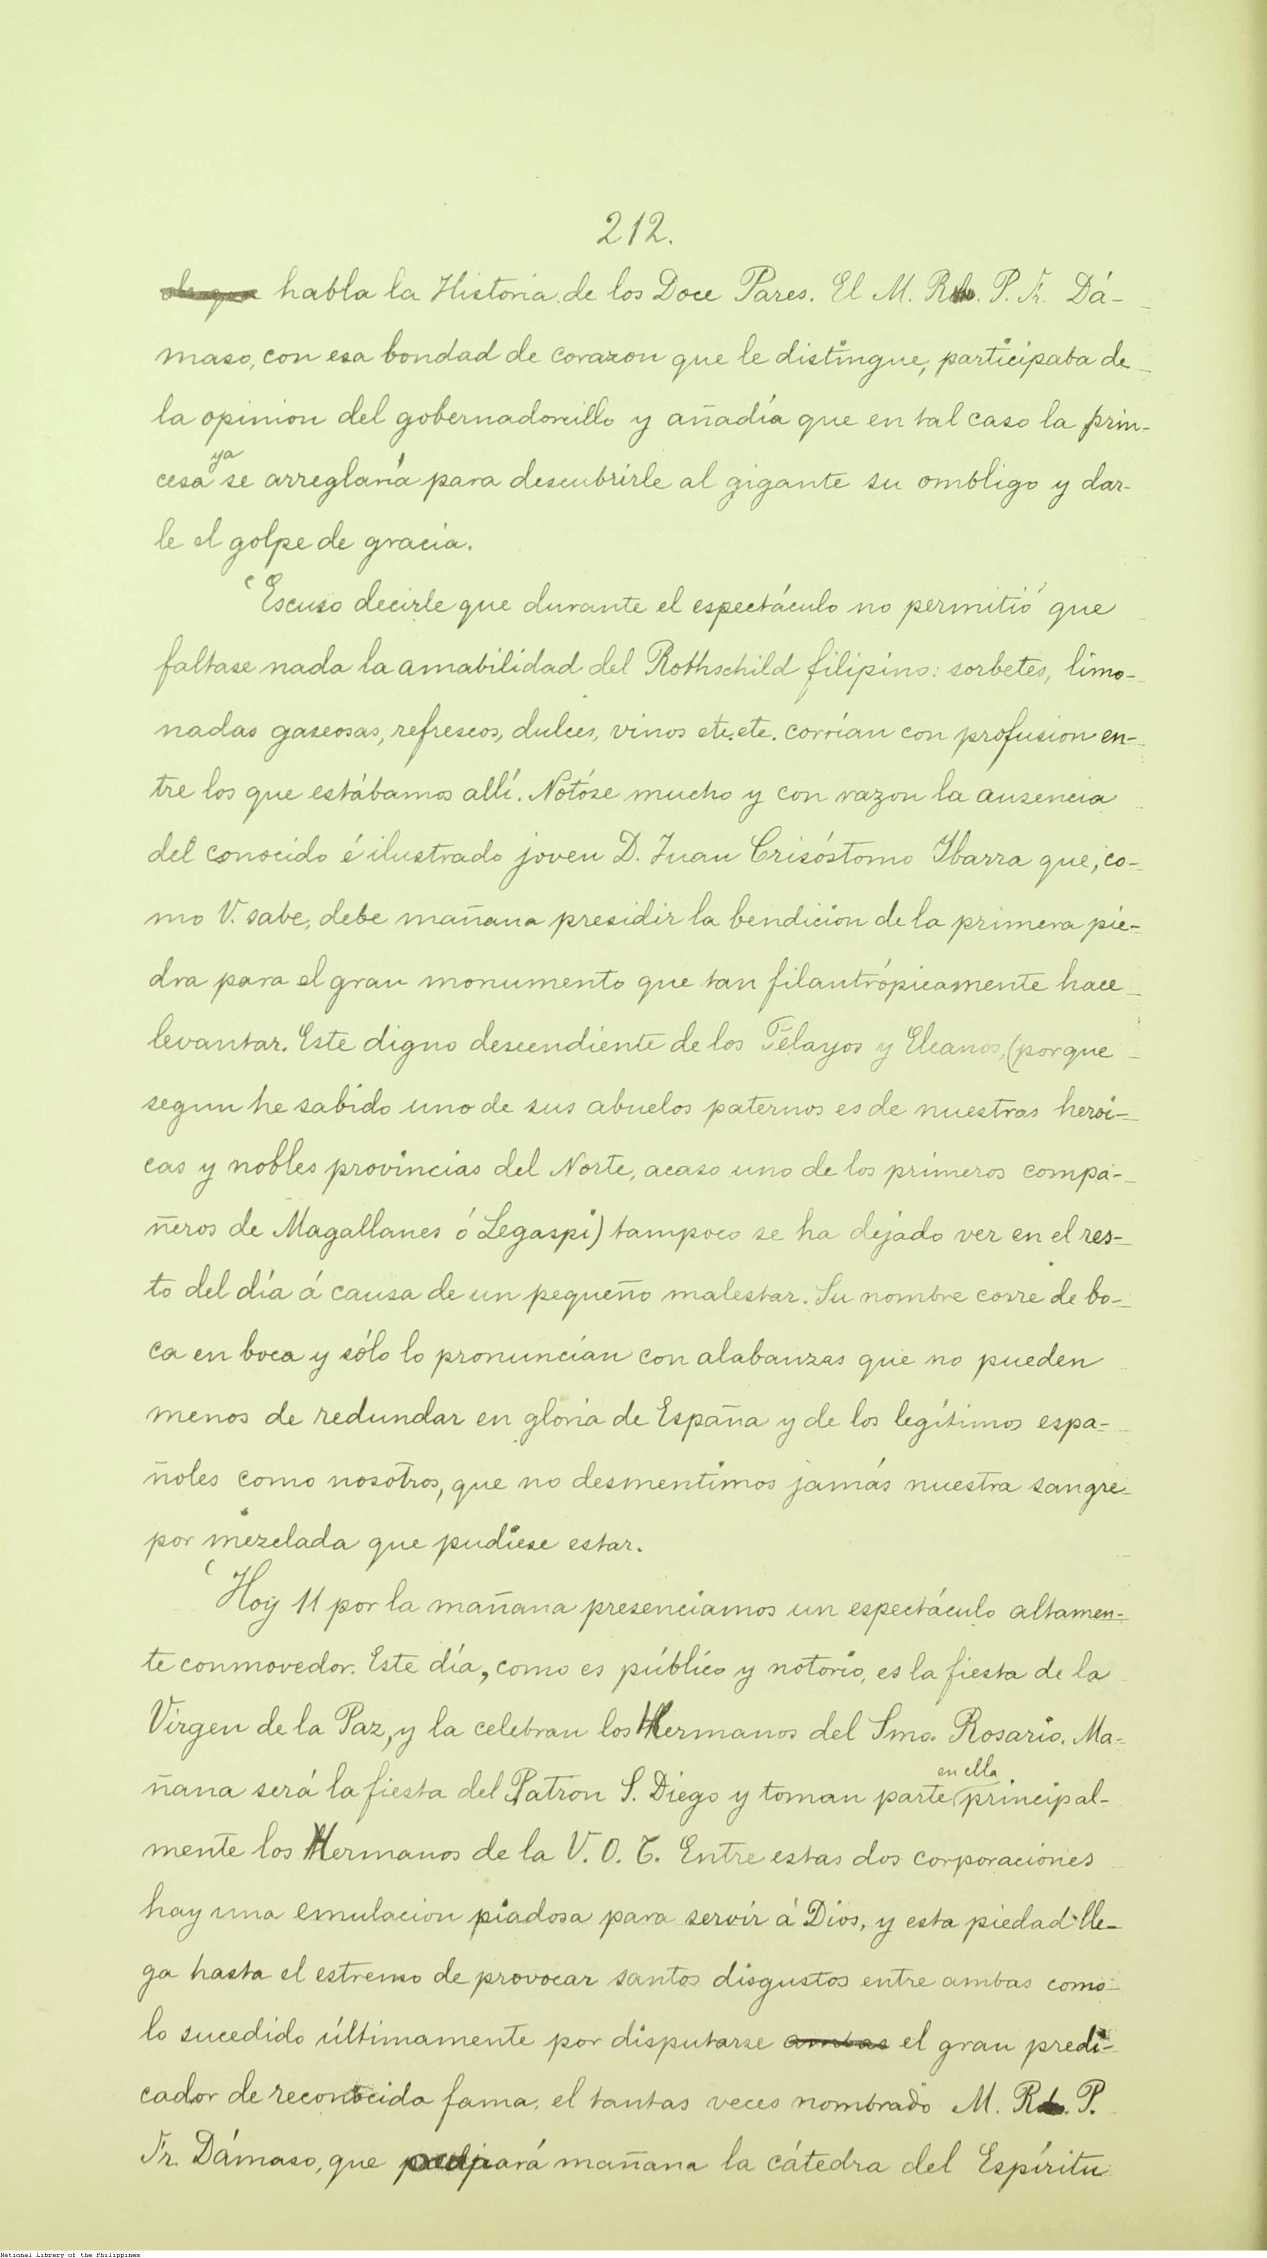 212.
habla la Historia de los Doce Pares. El M. R. P. Fr. Dá-
maso, con esa bondad de corazon que le distingue, participaba de
la opinion del gobernadorcillo y añadía que en tal caso la prin-
cesa ya se arreglaría para descubrirle al gigante su ombligo y dar-
le el golpe de gracia.
"Escuso decirle que durante el espectáculo no permitió que
faltase nada la amabilidad del Rothschild filipino: sorbetes, limo-
nadas gaseosas, refrescos, dulces, vinos etc. etc. corrían con profusion en-
tre los que estábamos allí. Notóse mucho y con razon la ausencia
del conocido é ilustrado joven D. Juan Crisóstomo Ibarra que, co-
mo V. sabe, debe mañana presidir la bendicion de la primera pie-
dra para el gran monumento que tan filantrópicamente hace
levantar. Este digno descendiente de los Pelayos y Elcanos, (porque
segun he sabido uno de sus abuelos paternos es de nuestras herói-
cas y nobles provincias del Norte, acaso uno de los primeros compa-
ñeros de Magallanes ó Legaspi) tampoco se ha dejado ver en el res-
to del día á causa de un pequeño malestar. Su nombre corre de bo-
ca en boca y sólo lo pronuncian con alabanzas que no pueden
menos de redundar en gloria de España y de los legítimos espa-
ñoles como nosotros, que no desmentimos jamás nuestra sangre
por mezclada que pudiese estar.
"Hoy 11 por la mañana presenciamos un espectáculo altamen-
te conmovedor. Este día, como es público y notorio, es la fiesta de la
Virgen de la Paz, y la celebran los Hermanos del Smo. Rosario. Ma-
ñana será la fiesta del Patron S. Diego y toman parte en ella principal-
mente los Hermanos de la V. O. T. Entre estas dos corporaciones
hay una emulacion piadosa para servir á Dios, y esta piedad lle-
ga hasta el estremo de provocar santos disgustos entre ambas como
lo sucedido últimamente por disputarse ambas el gran predi-
cador de reconocida fama, el tantas veces nombrado M. R. P.
Fr. Dámaso, que ocupará mañana la cátedra del Espíritu
National Library of the Philippines